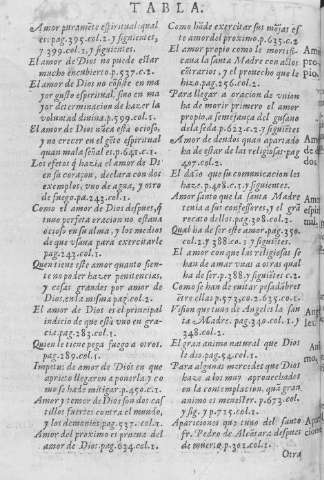 TABLA.
Amor puramēte espiritual qual
es: pag. 395. col. 2. y siguientes,
y 399. col. 2. y siguientes.
El amor de Dios no puede estar
mucho encubierto p. 537. c. 2.
El amor de Dios no cōsiste en ma
yor gusto espiritual sino en ma
yor determinacion de hazer la
voluntad diuina. p. 599. col. 1.
El amor de Dios nūca està ocioso,
y no crecer en el gusto espiritual
quan mala señal. p. 641. c. 1.
Los efetos q̃ hazia el amor de Di
en su coraçon, declara con dos
exemplos, vno de agua, y otro
de fuego. pa. 243. col. 1.
Como el amor de Dios despues, q̃
tuuo perfeta oracion no estaua
ocioso en su alma, y los medios
de que vsaua para exercitarle
pag. 243. col. 1.
Quen tiene este amor quanto sien-
te no poder hazer penitencias,
y cosas grandes por amor de
Dios, en la misma pag. col. 2.
El amor de Dios es el principal
indicio de que està vno en gra-
cia. pag. 282. col. 1.
Quien le tiene pega fuego a otros.
pag. 289. col. 1.
Impetus de amor de Dios en que
aprieto llegaren a ponerla, y co
mo se hàde mitigar. p. 450. c. 1.
Amor y temor de Dios son dos cas
tillos fuertes contra el mundo,
y los demonios. pag. 537. col. 1.
Amor del proximo es prueua del
amor de Dios. pag. 624. col. 1.
Como hūde exercitar sus mōjas es
te amor del proximo. p. 635. c. 2.
El amor propio como le mortifi-
caua la santa Madre con a los
cōtrarios, y el prouecho que le
hizo. pag. 256. col. 2.
Para llegar a oracion de vnion
ha de morir primero el amor
propio, a semejança del gusano
de la seda. p. 622. c. 2. y siguiētes
Amor de deudos quan apartado
ha de estar de las religiosas. pag
407. col. 2.
El daño que su comunicacion les
haze. p. 408. c. 1. y siguientes.
Amor santo que la santa Madre
tenia a sus confessores, y el grā
recato dellos. pag. 308. col. 2.
Qual ha de ser este amor. pag. 350
col. 2. y 388. co. 3 y siguiētes.
El amor con que las religiosas se
han de amar vnas a otras qual
ha de ser. p. 388. y siguientes c. 2.
Como se han de euitar pesadūbres
ētre ellas p. 573. co. 2. 635. co. 1.
Vision que tuuo de Angeles la san
ta Madre. pag. 340. col. 1. y
248. col. 2.
El gran animo natural que Dios
le dio. pag. 54. col. 1.
Para algunas mercedes que Dios
haze a los muy aprouechados
en la contemplacion, quā gran
animo es menester. p. 673. col.
y sig. 7 p. 715. col. 2.
Apariciones que tuuo del santo
fr. Pedro de Alcātara despues
de muerto. p. 302. col. 1.
Otra